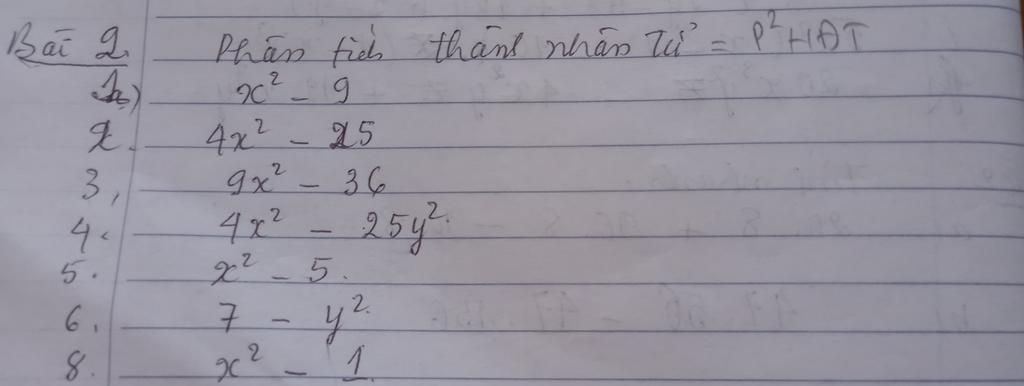 Bài 2. Phân tích thành nhân tử = P²HĐT
1,) x² - 9
2. 4x² - 25
3, 9x² - 36
4. 4x² - 25y².
5. x² - 5.
6. 7 - y².
8. x² - 1